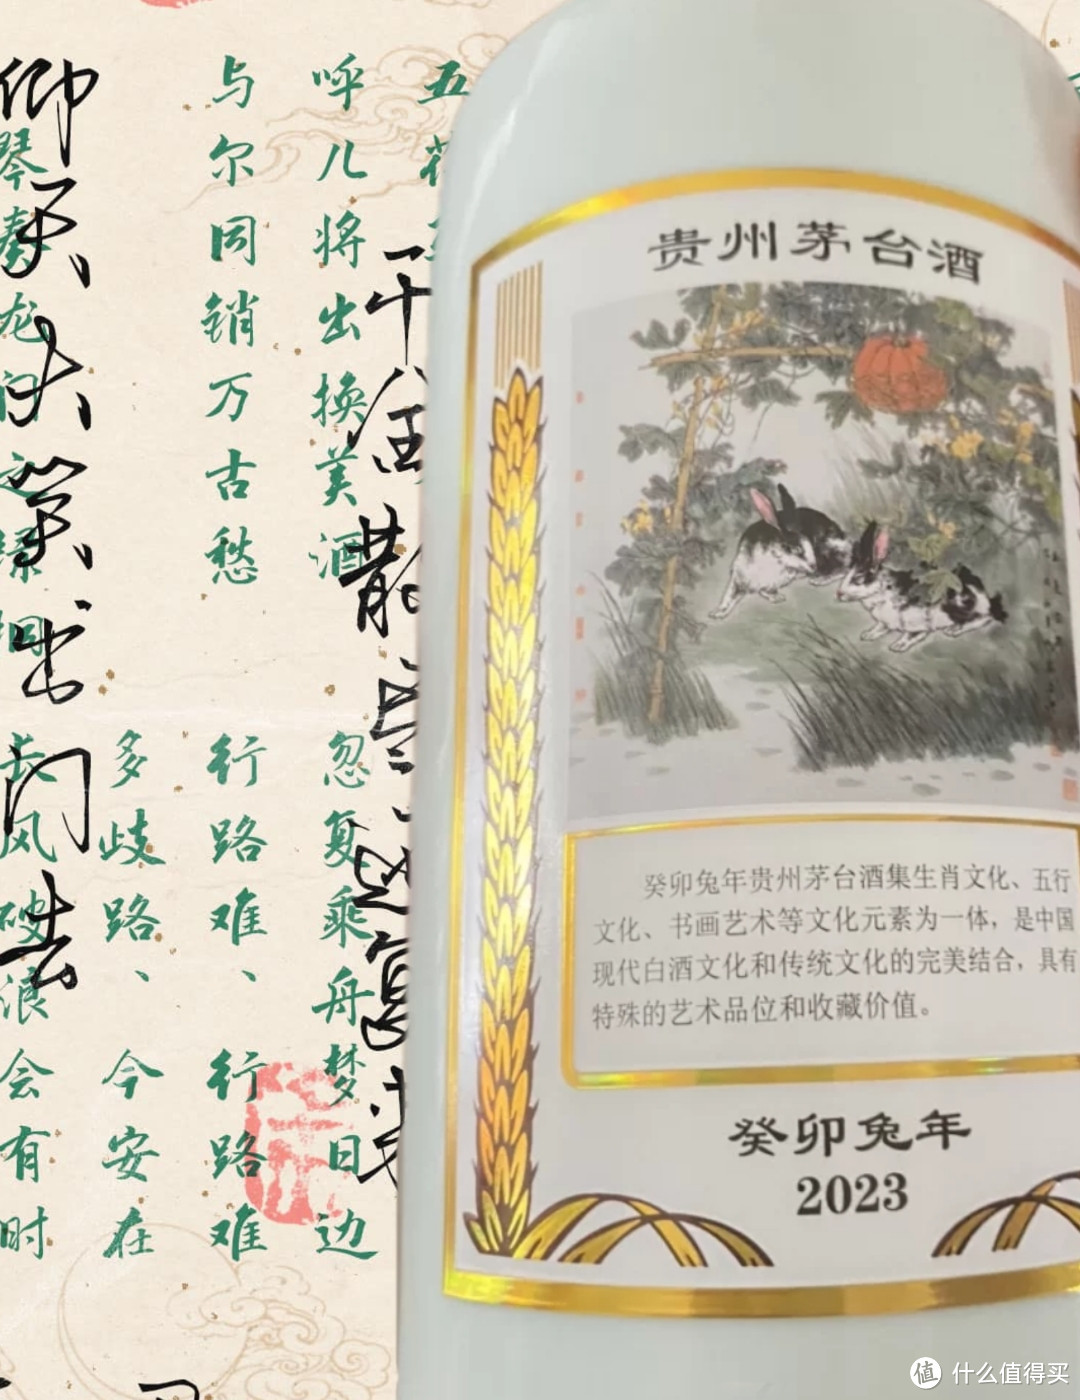 贵州茅台酒
癸卯兔年贵州茅台酒集生肖文化、五行
文化、书画艺术等文化元素为一体，是中国
现代白酒文化和传统文化的完美结合，具有
特殊的艺术品位和收藏价值。
癸卯兔年
2023
五花
呼儿将出换美酒
与尔同销万古愁
千金散尽还复来
仰天大笑出门去
忽复乘舟梦日边
行路难、行路难
多歧路、今安在
长风破浪会有时
值 什么值得买